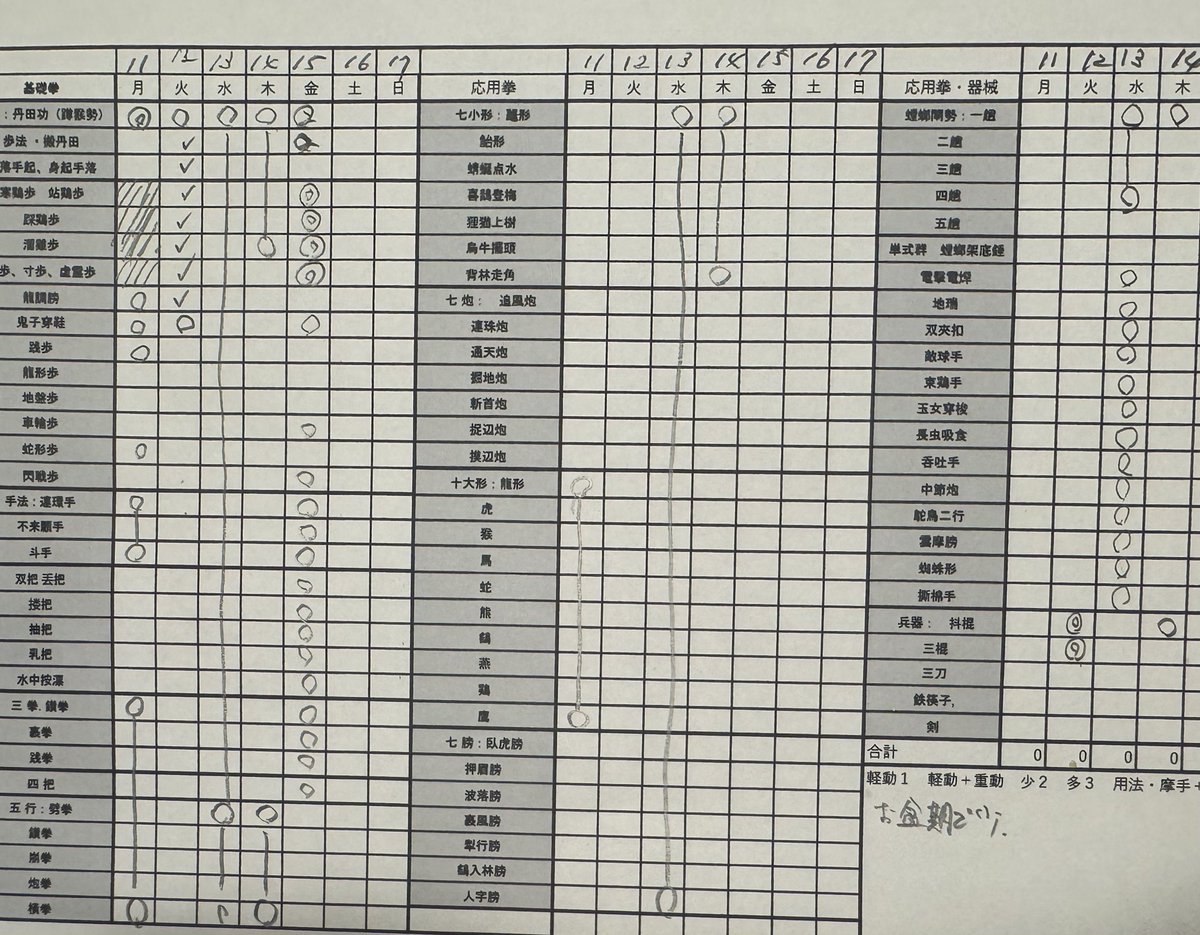 11 12 13 14 15 16 17 11 12 13 14 15 16 17 11 12 13 14
基礎拳 月 火 水 木 金 土 日 応用拳 月 火 水 木 金 土 日 応用拳・器械 月 火 水 木
:丹田功(蹲猴勢) 七小形: 螳螂閘勢:一趟
歩法・搬丹田 鮐形 二趟
落手起、身起手落 蜻蜒点水 三趟
寒鶏歩 站鶏歩 喜鵲登梅 四趟
踩鶏歩 狸猫上樹 五趟
溜鶏歩 烏牛擺頭 単式群 螳螂架底錘
歩、寸歩、虚霊歩 背林走角
龍調膀 七炮: 追風炮
鬼子穿鞋 連珠炮 双夾扣
践歩 通天炮 敵球手
龍形歩 掘地炮 束鶏手
地盤歩 斬首炮 玉女穿梭
車輪歩 捉辺炮 長虫吸食
蛇形歩 撲辺炮 呑吐手
閃戦歩 十大形:龍形 中節炮
手法:連環手 虎 鴕鳥二行
不来顧手 猴 雲摩膀
斗手 馬 蜘蛛形
双把 丟把 蛇 撕棉手
搂把 熊 兵器: 抖棍
抽把 鶴 三棍
乳把 燕 三刀
水中按漂 鶏 鉄筷子,
三拳.鑚拳 鷹 剣
裏拳 七膀:臥虎膀 合計 0 0 0 0
践拳 押眉膀 軽動1 軽動+重動 少2 多3 用法・摩手+
四把 波落膀 お盆期です.
五行:劈拳 裏風膀
鑚拳 犁行膀
崩拳 鶴入林膀
炮拳 人字膀
横拳